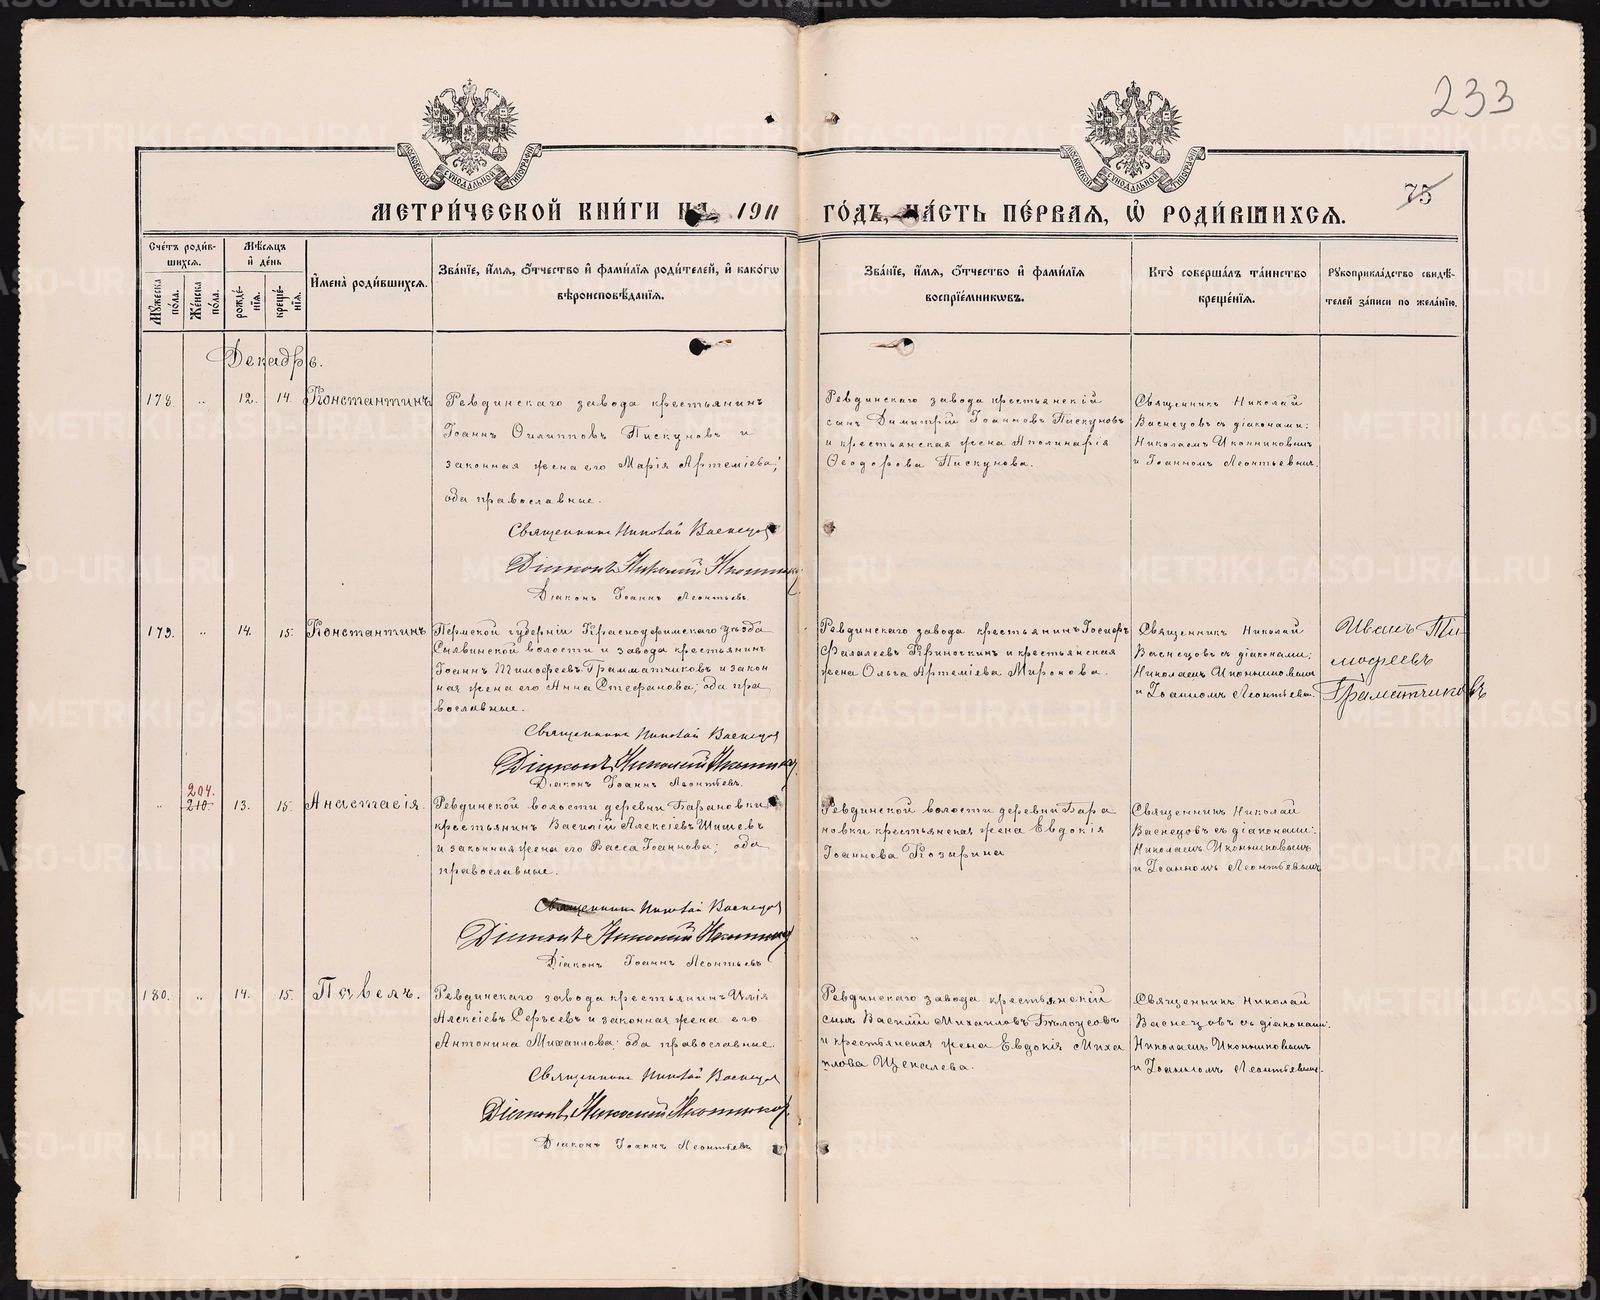 233
75
МОСКОВСКОЙ СѴНОДАЛЬНОЙ ТИПОГРАФІИ
МОСКОВСКОЙ СѴНОДАЛЬНОЙ ТИПОГРАФІИ
МЕТРИ́ЧЕСКОЙ КНИ́ГИ НА 1911 ГО́ДЪ, ЧА́СТЬ ПЕ́РВАЯ, Ѽ РОДИ́ВШИХСЯ.
Сче́тъ роди́в-
шихся.
Мꙋ́жеска по́ла.
Же́нска по́ла.
Мѣ́сяцъ
и де́нь
рожде́-
нія.
креще́-
нія.
Имена̀ роди́вшихся.
Зва́ніе, и́мя, ѻ́тчество и фами́лія роди́телей, и како́гѡ
вѣроисповѣ́данія.
Зва́ніе, и́мя, ѻ́тчество и фами́лія
воспріе́мникѡвъ.
Кто̀ соверша́лъ та́инство
креще́нія.
Рꙋкоприкла́дство свидѣ́-
телей за́писи по жела́нію.
Декабрь.
178. „ 12. 14. Константинъ
Ревдинскаго завода крестьянинъ
Іоаннъ Филипповъ Пискуновъ и
законная жена его Марія Артеміева;
оба православные.
Священникъ Николай Васнецов
Діаконъ Николай Иконников
Діаконъ Іоаннъ Леонтьевъ.
Ревдинскаго завода крестьянскій
сынъ Димитрій Іоанновъ Пискуновъ
и крестьянская жена Аполинарія
Ѳеодорова Пискунова.
Священникъ Николай
Васнецовъ съ діаконами:
Николаемъ Иконниковымъ
и Іоанномъ Леонтьевымъ.
179. „ 14. 15. Константинъ
Пермской губерніи Красноуфимскаго уѣзда
Сылвинской волости и завода крестьянинъ
Іоаннъ Тимофеевъ Грамматчиковъ и закон
ная жена его Анна Стефанова; оба пра
вославные.
Священникъ Николай Васнецов
Діаконъ Николай Иконников
Діаконъ Іоаннъ Леонтьевъ.
Ревдинскаго завода крестьянинъ Іосифъ
Фалалеевъ Криночкинъ и крестьянская
жена Ольга Артеміева Миронова.
Священникъ Николай
Васнецовъ съ діаконами:
Николаемъ Иконниковымъ
и Іоанномъ Леонтьевы
Иванъ Ти-
мофеевъ
Граматчиковъ
204.
„ 210. 13. 15. Анастасія.
Ревдинской волости деревни Барановки
крестьянинъ Василій Алексіевъ Шишевъ
и законная жена его Васса Іоаннова; оба
православные.
Священникъ Николай Васнецов
Діаконъ Николай Иконников
Діаконъ Іоаннъ Леонтьевъ
Ревдинской волости деревни Бара
новки крестьянская жена Евдокія
Іоаннова Козырина
Священникъ Николай
Васнецовъ съ діаконами:
Николаемъ Иконниковымъ
и Іоанномъ Леонтьевымъ
180. „ 14. 15. Павелъ.
Ревдинскаго завода крестьянинъ Илія
Алексіевъ Серьевъ и законная жена его
Антонина Михаилова; оба православные.
Священникъ Николай Васнецов
Діаконъ Николай Иконников.
Діаконъ Іоаннъ Леонтьевъ
Ревдинскаго завода крестьянскій
сынъ Василій Михаиловъ Бѣлоусовъ
и крестьянская жена Евдокія Миха
илова Щекалева.
Священникъ Николай
Васнецовъ съ діаконами:
Николаемъ Иконниковымъ
и Іоанномъ Леонтьевым.
METRIKI.GASO-URAL.RU